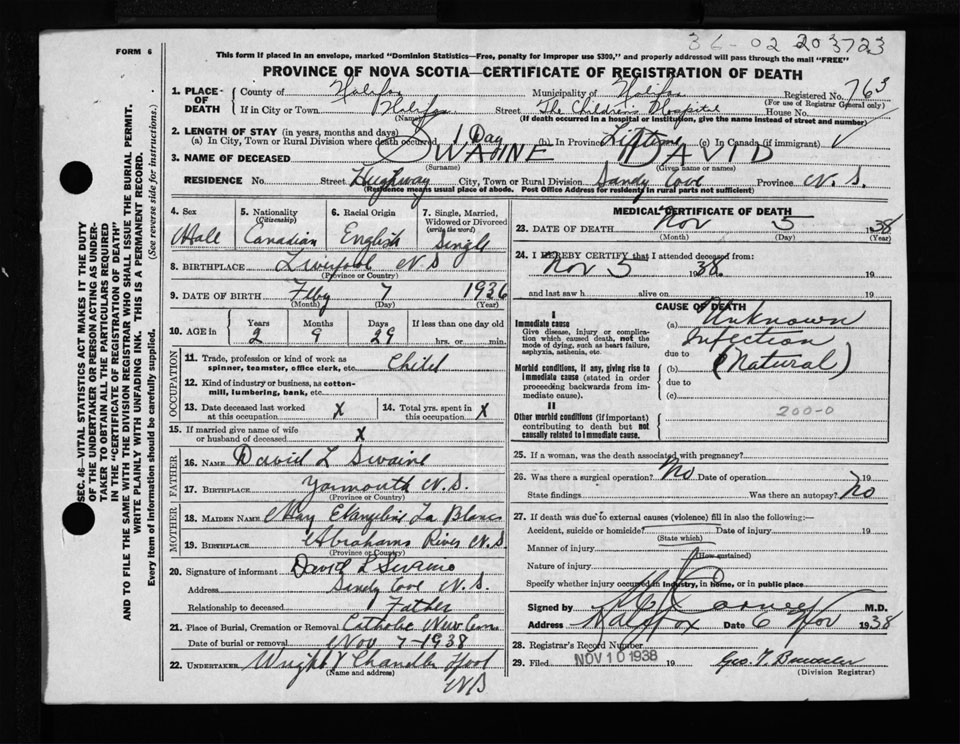 36-02 203723
FORM 6
This form if placed in an envelope, marked "Dominion Statistics—Free, penalty for improper use $300," and properly addressed will pass through the mail "FREE"
PROVINCE OF NOVA SCOTIA—CERTIFICATE OF REGISTRATION OF DEATH
1. PLACE OF DEATH County of Halifax Municipality of Halifax Registered No. 763
(For use of Registrar General only)
If in City or Town Halifax Street The Children's Hospital House No.
(Name) (If death occurred in a hospital or institution, give the name instead of street and number)
2. LENGTH OF STAY (in years, months and days)
(a) In City, Town or Rural Division where death occurred 1 Day (b) In Province Lifetime (c) In Canada (if immigrant)
3. NAME OF DECEASED SWAINE DAVID
(Surname) (Given name or names)
RESIDENCE No. Street Highway City, Town or Rural Division Sandy Cove Province N.S.
(Residence means usual place of abode. Post Office Address for residents in rural parts not sufficient)
4. Sex Male
5. Nationality (Citizenship) Canadian
6. Racial Origin English
7. Single, Married, Widowed or Divorced (write the word) Single
8. BIRTHPLACE Liverpool N S
(Province or Country)
9. DATE OF BIRTH Feby 7 1936
(Month) (Day) (Year)
10. AGE in Years 2 Months 9 Days 29 If less than one day old hrs. or min.
OCCUPATION
11. Trade, profession or kind of work as spinner, teamster, office clerk, etc. Child
12. Kind of industry or business, as cotton-mill, lumbering, bank, etc.
13. Date deceased last worked at this occupation X
14. Total yrs. spent in this occupation X
15. If married give name of wife or husband of deceased X
FATHER
16. NAME David L Swaine
17. BIRTHPLACE Yarmouth N.S.
(Province or Country)
MOTHER
18. MAIDEN NAME Mary Evangeline La Blanc
19. BIRTHPLACE Abrahams River N.S.
(Province or Country)
20. Signature of informant David L Swaine
Address Sandy Cove N.S.
Relationship to deceased Father
21. Place of Burial, Cremation or Removal Catholic New Cem
Date of burial or removal Nov 7-1938
22. UNDERTAKER Wright Chandler
(Name and address)
NS
MEDICAL CERTIFICATE OF DEATH
23. DATE OF DEATH Nov 5 1938
(Month) (Day) (Year)
24. I HEREBY CERTIFY that I attended deceased from:
Nov 5 1938 19
and last saw h alive on 19
CAUSE OF DEATH
I
Immediate cause
Give disease, injury or complication which caused death, not the mode of dying, such as heart failure, asphyxia, asthenia, etc.
(a) Unknown
Infection
due to
Morbid conditions, if any, giving rise to immediate cause (stated in order proceeding backwards from immediate cause).
(b) (Natural)
due to
(c)
200-0
II
Other morbid conditions (if important) contributing to death but not causally related to immediate cause.
25. If a woman, was the death associated with pregnancy?
26. Was there a surgical operation? No Date of operation 19
State findings Was there an autopsy? No
27. If death was due to external causes (violence) fill in also the following:—
Accident, suicide or homicide? Date of injury 19
(State which)
Manner of injury
(How sustained)
Nature of injury
Specify whether injury occurred in industry, in home, or in public place
Signed by M.D.
Address Halifax Date 6 Nov 1938
28. Registrar's Record Number
29. Filed NOV 10 1938 19
(Division Registrar)
SEC. 46—VITAL STATISTICS ACT MAKES IT THE DUTY
OF THE UNDERTAKER OR PERSON ACTING AS UNDER-
TAKER TO OBTAIN ALL THE PARTICULARS REQUIRED
IN THE "CERTIFICATE OF REGISTRATION OF DEATH"
AND TO FILE THE SAME WITH THE DIVISION REGISTRAR WHO SHALL ISSUE THE BURIAL PERMIT.
WRITE PLAINLY WITH UNFADING INK. THIS IS A PERMANENT RECORD.
Every item of Information should be carefully supplied. (See reverse side for instructions.)